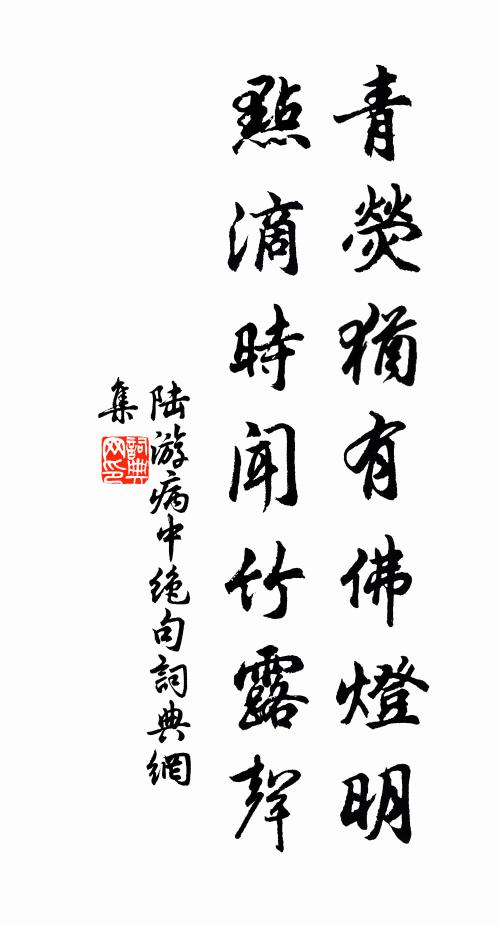 青熒猶有佛燈明
點滴時聞竹露聲
陆游病中绝句詞典網
集
詞典
网印